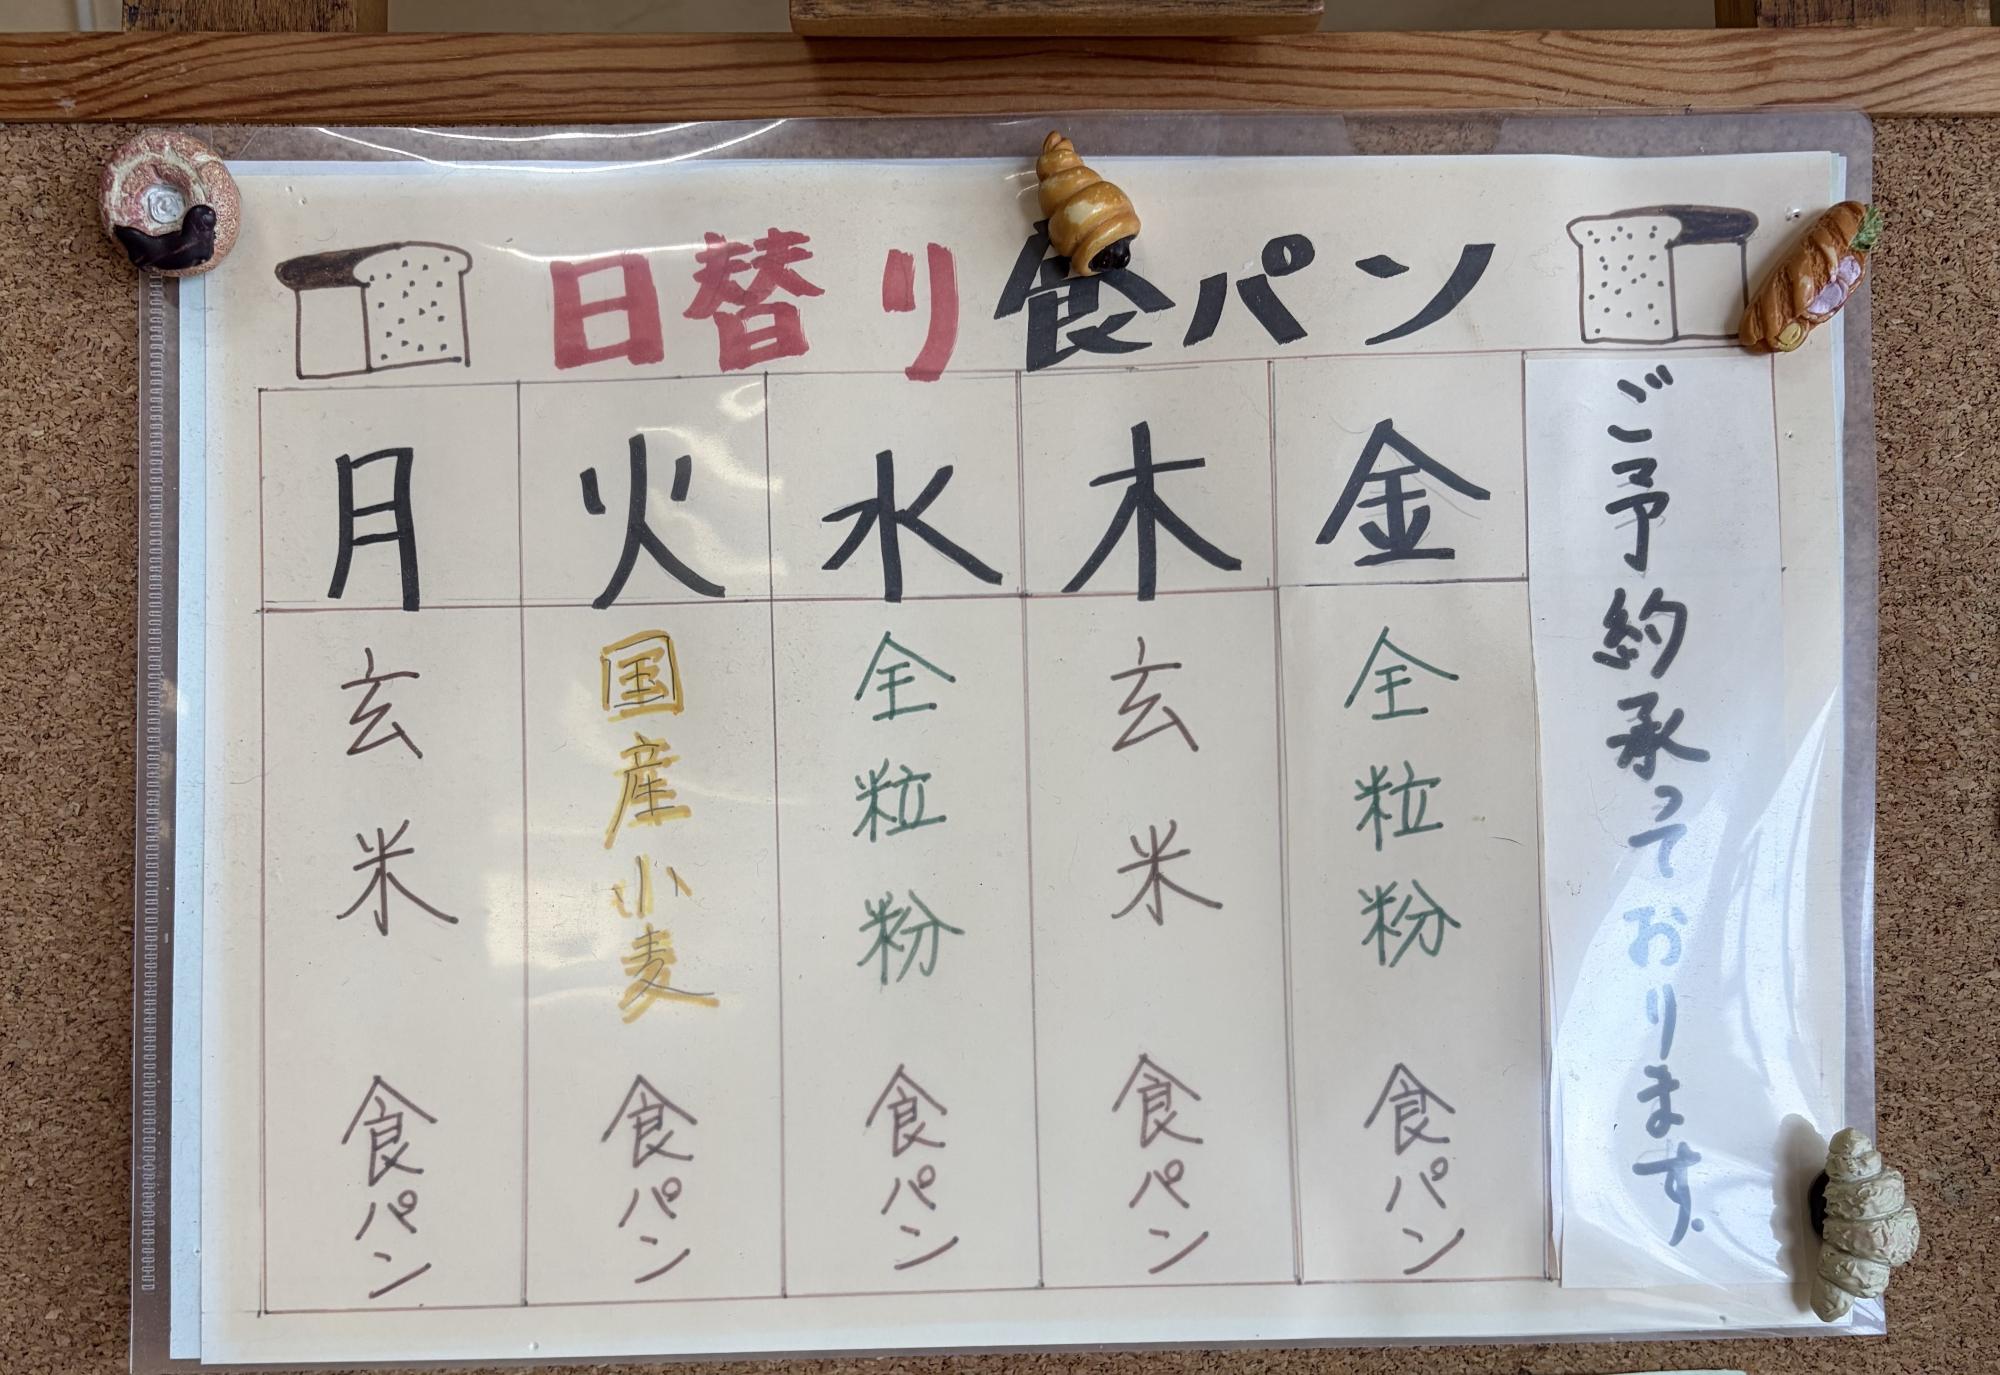 日替り食パン
月
火
水
木
金
玄米 食パン
国産小麦 食パン
全粒粉 食パン
玄米 食パン
全粒粉 食パン
ご予約承っております。